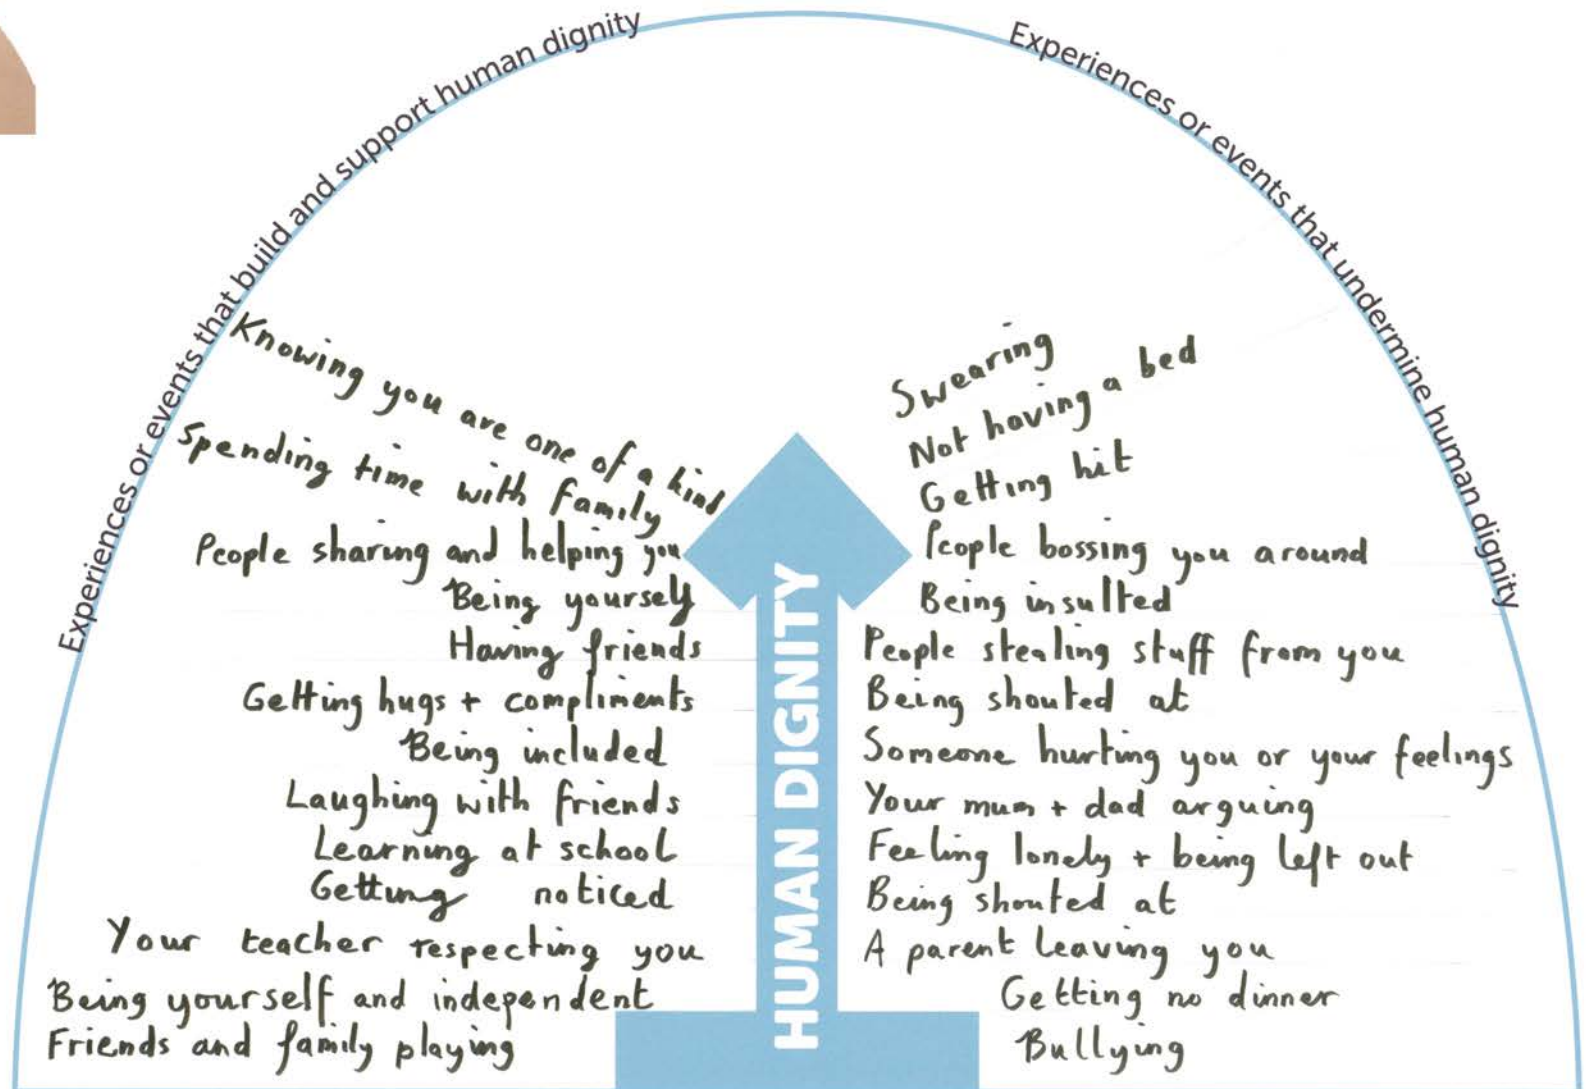 Experiences or events that build and support human dignity
Experiences or events that undermine human dignity
Knowing you are one of a kind
Spending time with family
People sharing and helping you
Being yourself
Having friends
Getting hugs + compliments
Being included
Laughing with friends
Learning at school
Getting noticed
Your teacher respecting you
Being yourself and independent
Friends and family playing
HUMAN DIGNITY
Swearing
Not having a bed
Getting hit
People bossing you around
Being insulted
People stealing stuff from you
Being shouted at
Someone hurting you or your feelings
Your mum + dad arguing
Feeling lonely + being left out
Being shouted at
A parent leaving you
Getting no dinner
Bullying